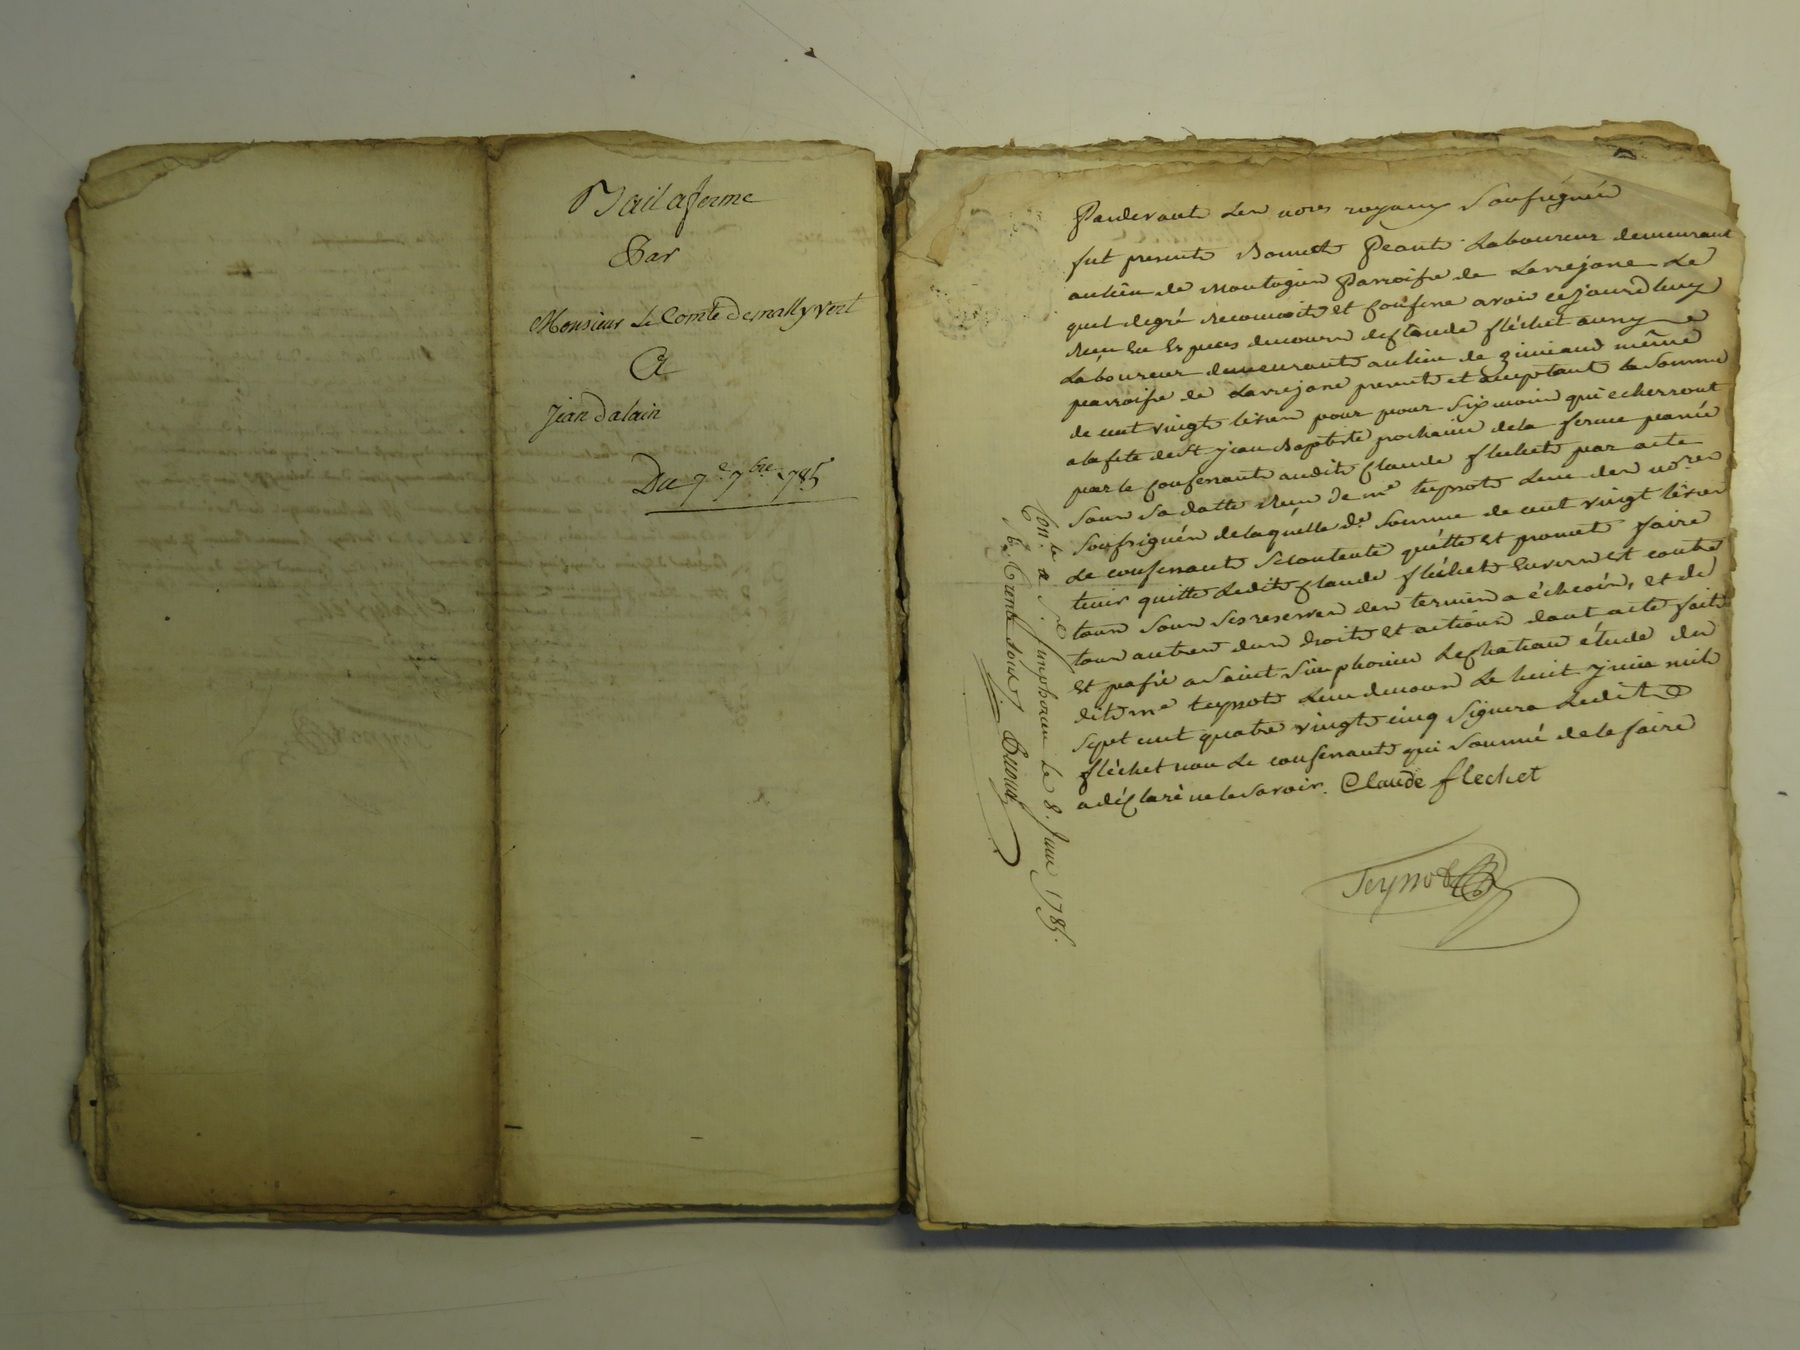 Bail a ferme
Par
Monsieur Le Comte De mallyvert
A
Jean Dalain
Du 7e 7bre 1785
Pardevant Les nores royaux Soussignés
fut present Bonnet Peant Laboureur demeurant
au lieu de Montagin Parroisse de Larrejasse Le
quel de gré reconnoit et Confesse avoir ce jourd'huy
reçu en Especes du cours de Claude fléchet aussy
Laboureur demeurant au lieu de même
parroisse de Larrejasse present et acceptant la Somme
de cent vingt livres pour pour Six mois qui echerront
a la fete de St jean Baptiste prochaine de la ferme passée
par le Confessant audit Claude flechet par acte
Sous Sa datte Reçu de me teyssot L'un des nores
Soussignés de laquelle de. Somme de cent vingt livres
Le confessant Se contente quitte et promet faire
tenir quitte Ledit Claude flechet Envers et contre
tous Sous Ses reserves des termes a échéoir, et de
tous autres Dus droits et actions dont acte fait
Et passé a Saint Simphorien Le Chateau étude du
dit me teyssot L'un de nous Le huit juin mil
Sept cent quatre vingt cinq Signera Ledit
fléchet non Le confessant qui Sommé de le faire
a déclaré ne le Savoir. Claude flechet
Teyssot
Conlé a St. Simphorien le 8. Juin 1785.